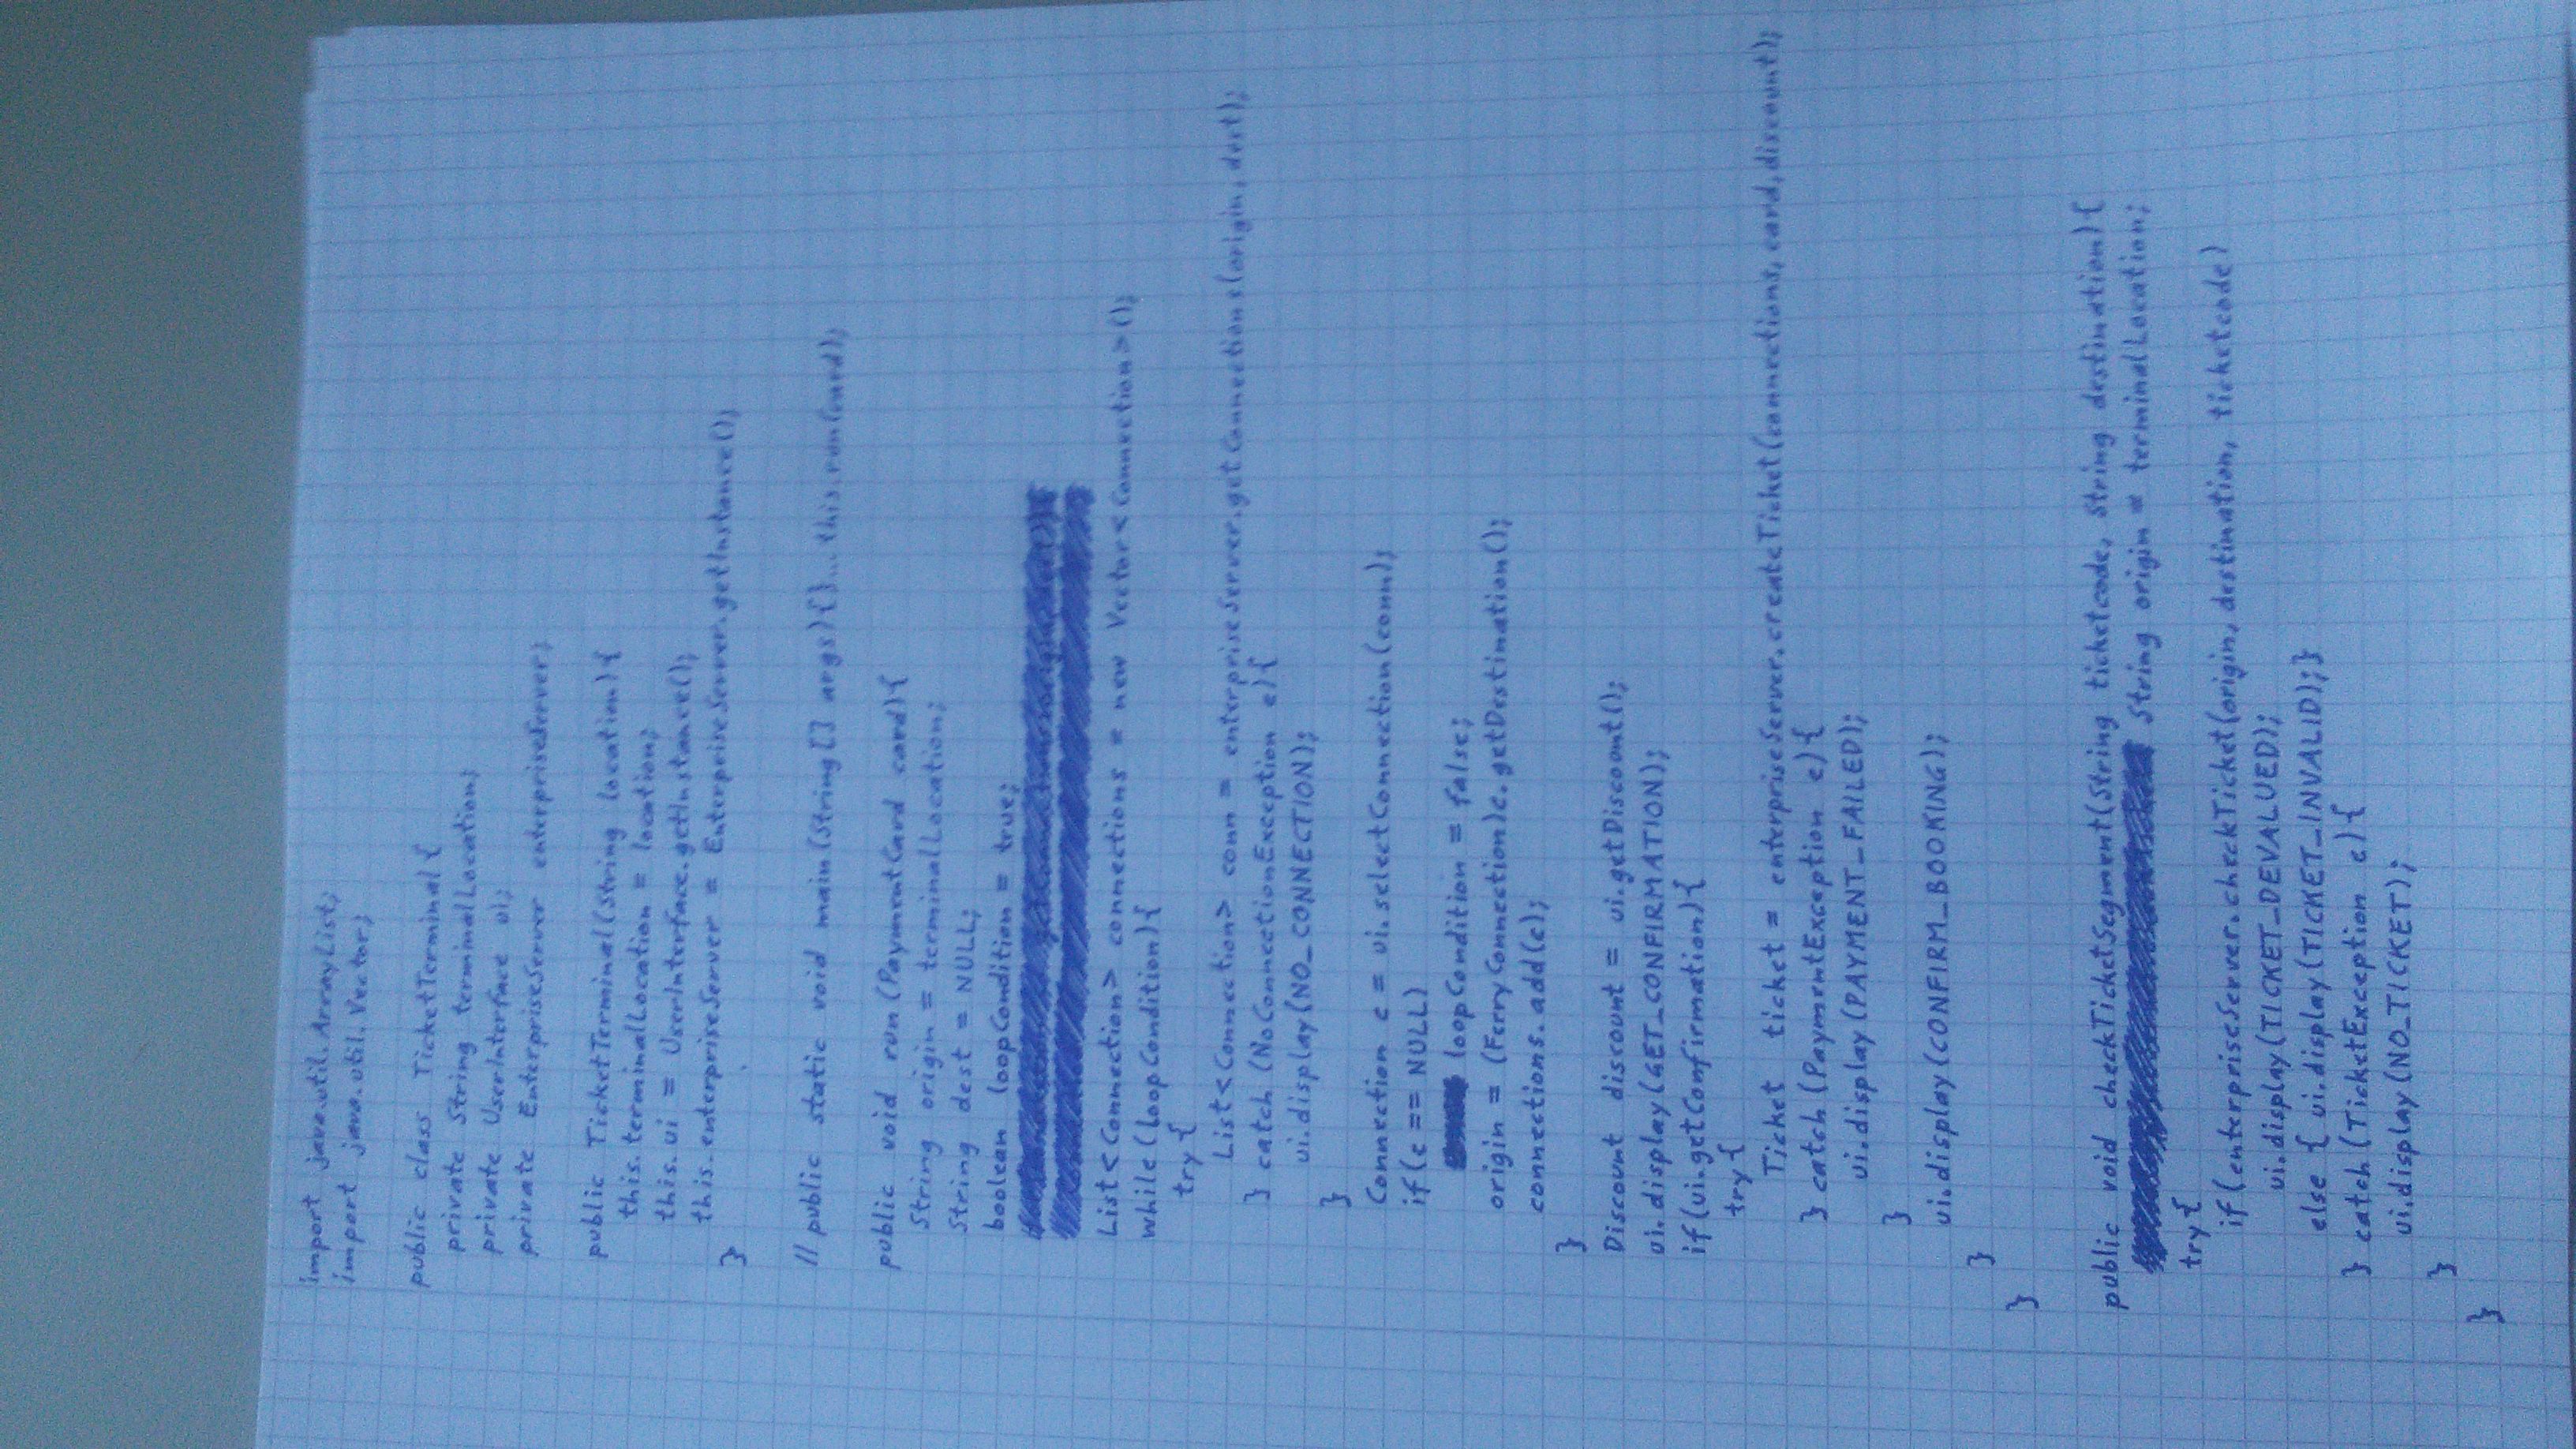 import java.util.ArrayList;
import java.util.Vector;
public class TicketTerminal{
private String terminalLocation;
private UserInterface ui;
private EnterpriseServer enterpriseServer;
public TicketTerminal(String location){
this.terminalLocation = location;
this.ui = UserInterface.getInstance();
this.enterpriseServer = EnterpriseServer.getInstance();
}
// public static void main(String[] args){}...this.run(card);
public void run(PaymentCard card){
String origin = terminalLocation;
String dest = NULL;
boolean loopCondition = true;
List<Connection> connections = new Vector<Connection>();
while(loopCondition){
try{
List<Connection> conn = enterpriseServer.getConnections(origin, dest);
} catch (NoConnectionException e){
ui.display(NO_CONNECTION);
}
Connection c = ui.selectConnection(conn);
if(c == NULL)
loopCondition = false;
origin = (FerryConnection)c.getDestination();
connections.add(c);
}
Discount discount = ui.getDiscount();
ui.display(GET_CONFIRMATION);
if(ui.getConfirmation){
try{
Ticket ticket = enterpriseServer.createTicket(connections, card, discount);
} catch (PaymentException e){
ui.display(PAYMENT_FAILED);
}
ui.display(CONFIRM_BOOKING);
}
}
public void checkTicketSegment(String ticketcode, String destination){
String origin = terminalLocation;
try{
if(enterpriseServer.checkTicket(origin, destination, ticketcode)
ui.display(TICKET_DEVALUED);
else { ui.display(TICKET_INVALID);}
} catch (TicketException e){
ui.display(NO_TICKET);
}
}